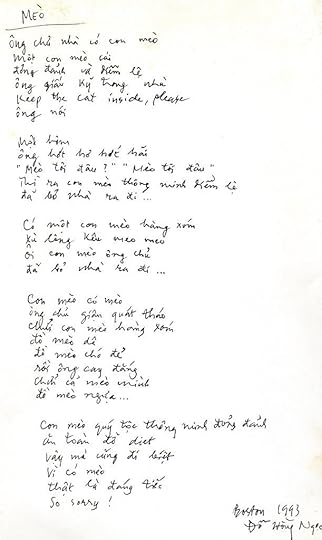 MÈO
Ông chủ nhà có con mèo
Một con mèo cái
đỏng đảnh và diễm lệ
ông giấu kỹ trong nhà
Keep the cat inside, please
ông nói
Một hôm
ông hớt hơ hớt hãi
"Mèo tôi đâu?" "Mèo tôi đâu"
Thì ra con mèo thông minh diễm lệ
đã bỏ nhà ra đi ...
Có một con mèo hàng xóm
Xù lông kêu meo meo
Ôi con mèo ông chủ
đã bỏ nhà ra đi ...
Con mèo có mèo
ông chủ giận quát tháo
Chửi con mèo hàng xóm
đồ mèo dê
đồ mèo chó đẻ
rồi ông cay đắng
Chửi cả mèo mình
đồ mèo ngựa ...
Con mèo quý tộc thông minh đỏng đảnh
ăn toàn đồ diet
vậy mà cũng đi biệt
Vì có mèo
thật là đáng tiếc
So sorry !
Boston 1993
Đỗ Hồng Ngọc